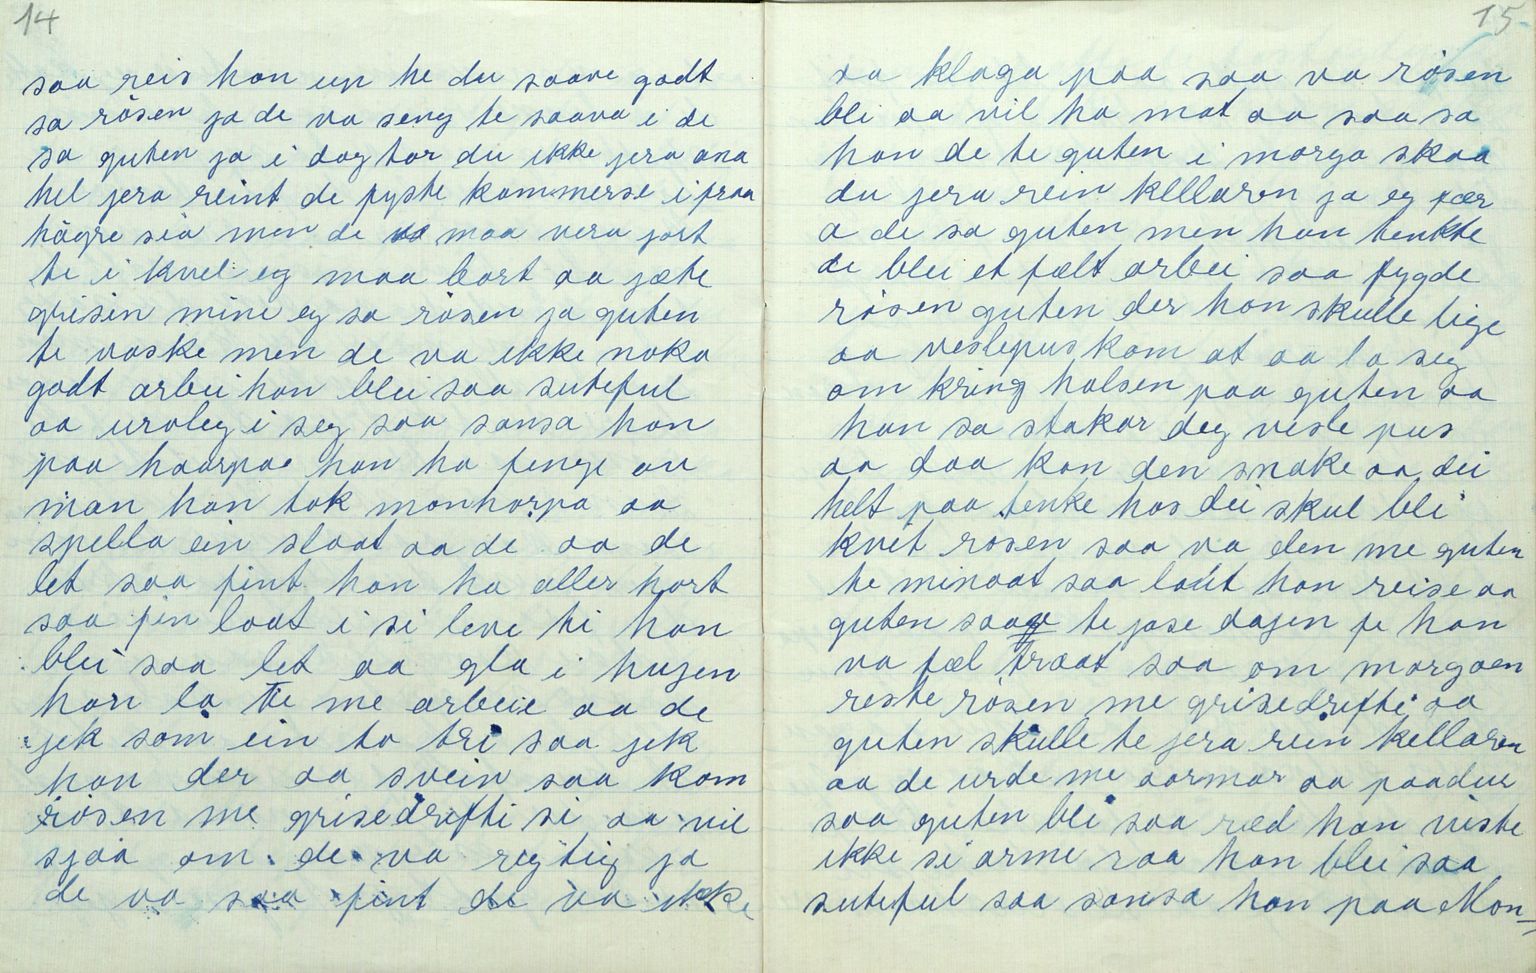 14
saa reis han up he du saave godt
sa rósen ja de va seng te saava i de
sa guten ja i dag tar du ikke jera ana
hel jera reint de fyste kammerse i fraa
hägre sia men de maa vera jort
te i kvel eg maa bort aa jæte
grisin mine eg sa rósen ja guten
te vaske men de va ikke noka
godt arbei han blei saa suteful
aa uroleg i seg saa sansa han
paa haarpae han ha fenge au
man han tok manharpa aa
spella ein slaat aa de aa de
let saa fint han ha aller hort
saa fin laat i si leve ti han
blei saa let aa gla i hugen
han la te me arbeie aa de
jek som ein to tri saa jek
han der aa svein saa kom
rósen me grisedrifti si aa vil
sjaa om de va regtig ja
de va saa fint de va ikke
15
aa klaga paa saa va rósen
bli aa vil ha mat aa saa sa
han de te guten i morgo skaa
du jera rein kellaren ja eg fær
a de sa guten men han tenkte
de blei et fælt arbei saa fygde
rósen guten der han skulle lige
aa veslepus kom at aa la seg
om kring halsen paa guten aa
han sa stakar deg vesle pus
aa daa kan den snake aa dei
helt paa tenke has dei skul bli
kvit rosen saa va den me guten
te minaat saa laut han reise aa
guten saag te jase dagen fe han
va fæl traat saa om morgaen
reste rósen me grisedrifti aa
guten skulle te jera rein kellaren
aa de urde me aarmar aa paadur
saa guten bli saa ræd han viste
ikke si arme raa han blei saa
suteful saa sansa han paa Mon-